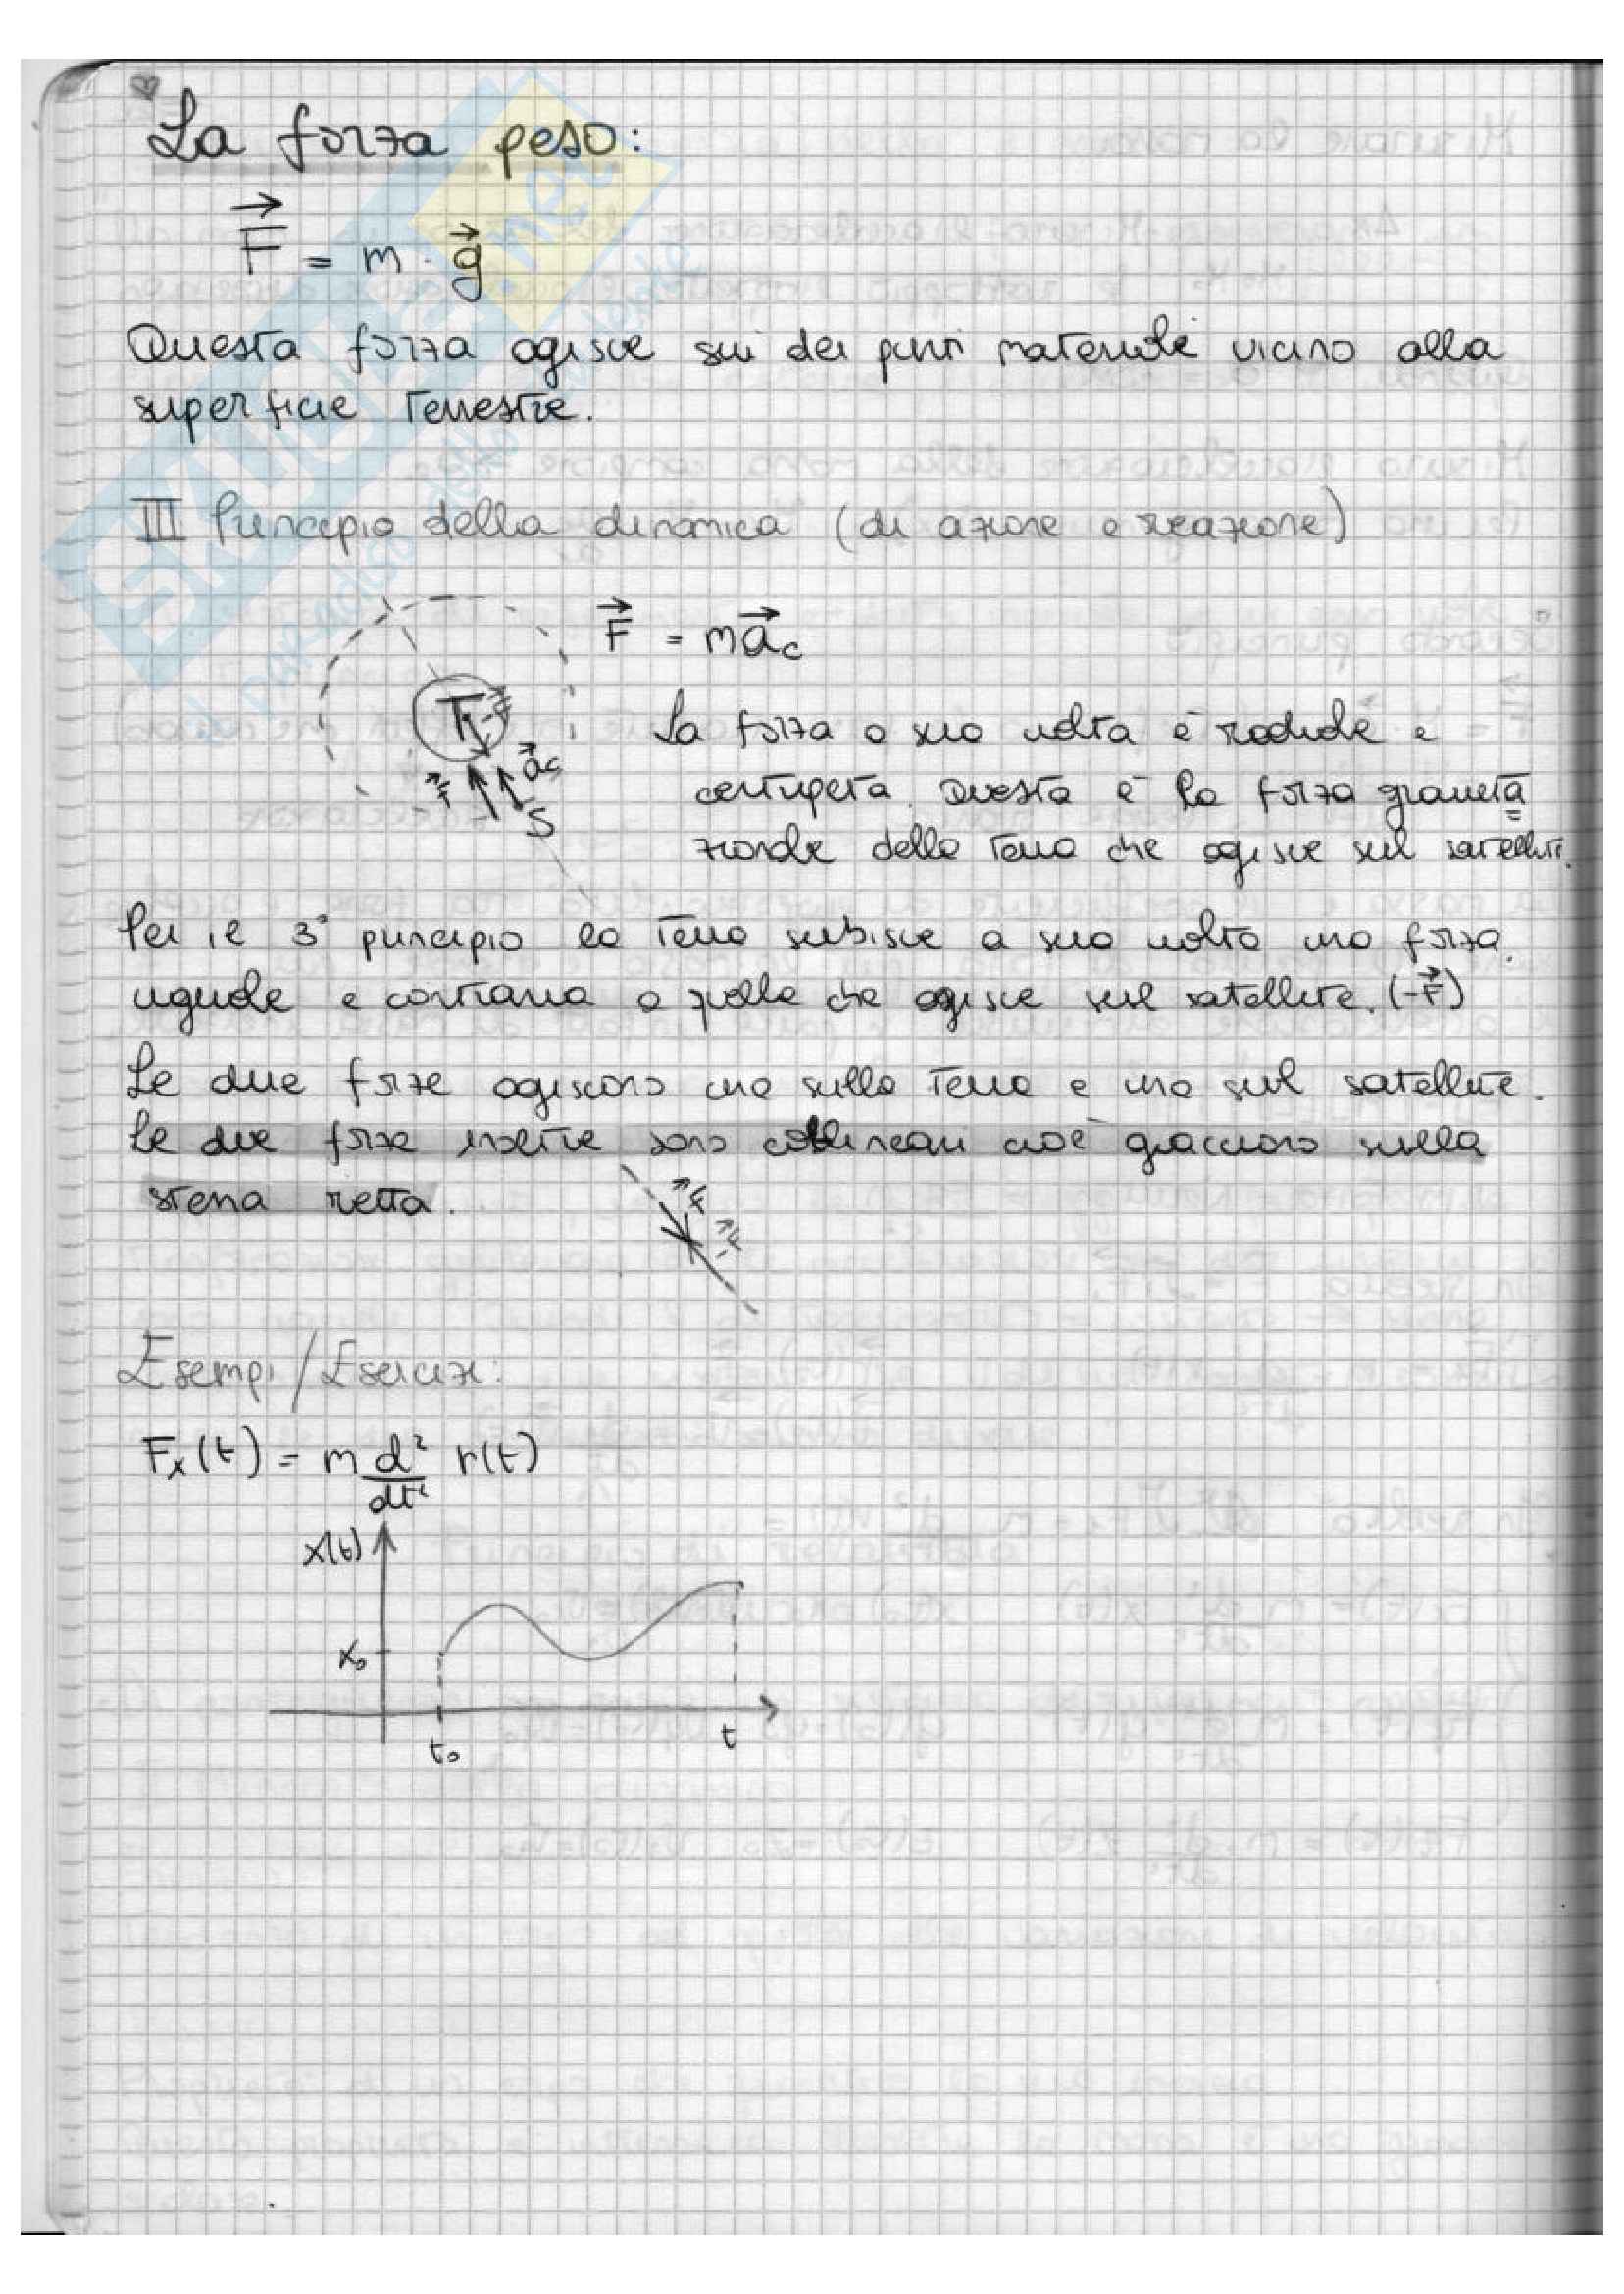 La forza peso:
F⃗ = m · g⃗
Questa forza agisce sui dei punti materiale vicino alla
superficie terrestre.
III Principio della dinamica (di azione e reazione)
F⃗ = m a⃗c
T -F⃗
La forza a sua volta è radiale e
F⃗ a⃗c
centripeta. Questa è la forza gravita=
S
zionale della Terra che agisce sul satellite.
Per il 3° principio la Terra subisce a sua volta una forza
uguale e contraria a quella che agisce sul satellite. (-F⃗)
Le due forze agiscono una sulla Terra e una sul satellite.
Le due forze inoltre sono collineari cioè giacciono sulla
stessa retta.
F⃗
-F⃗
Esempi/Esercizi:
Fx(t) = m d²/dt² r(t)
x(t)
x₀
t₀ t
SKUOLA.net
il paradiso dello studente